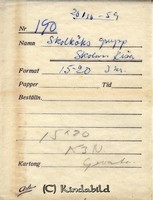 20/10-59
Nr 190
Namn Skolköks grupp
Skolan Kisa
Format 15-20 3 kr.
Papper Tid
Beställn.
15x20
Kartong
(c) Kindabild